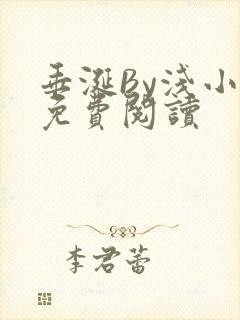 垂涎By淺小
免費閱讀
李君蕾